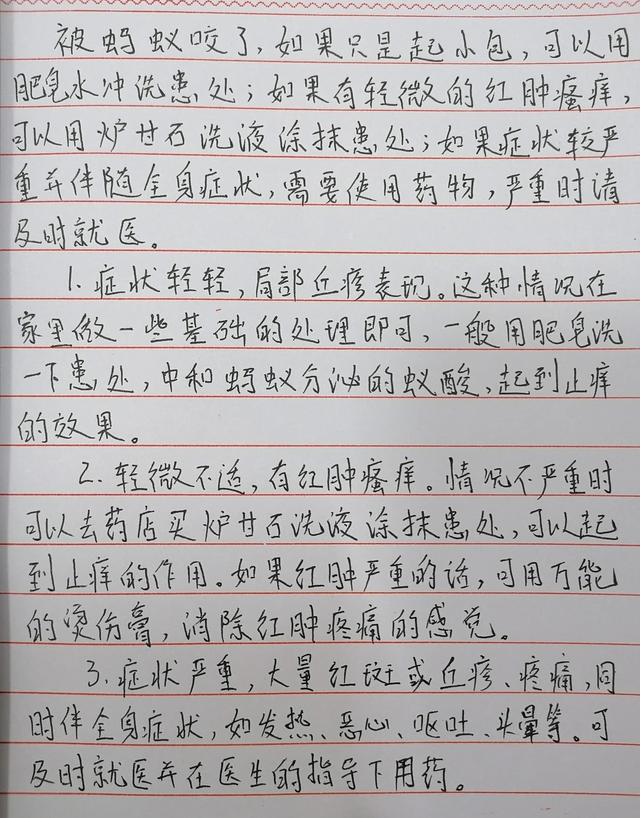 被蚂蚁咬了,如果只是起小包,可以用
肥皂水冲洗患处;如果有轻微的红肿瘙痒,
可以用炉甘石洗液涂抹患处;如果症状较严
重并伴随全身症状,需要使用药物,严重时请
及时就医。
1.症状轻轻,局部丘疹表现。这种情况在
家里做一些基础的处理即可,一般用肥皂洗
一下患处,中和蚂蚁分泌的蚁酸,起到止痒
的效果。
2.轻微不适,有红肿瘙痒。情况不严重时
可以去药店买炉甘石洗液涂抹患处,可以起
到止痒的作用。如果红肿严重的话,可用万能
的烫伤膏,消除红肿疼痛的感觉。
3.症状严重,大量红斑或丘疹、疼痛,同
时伴全身症状,如发热、恶心、呕吐、头晕等。可
及时就医并在医生的指导下用药。